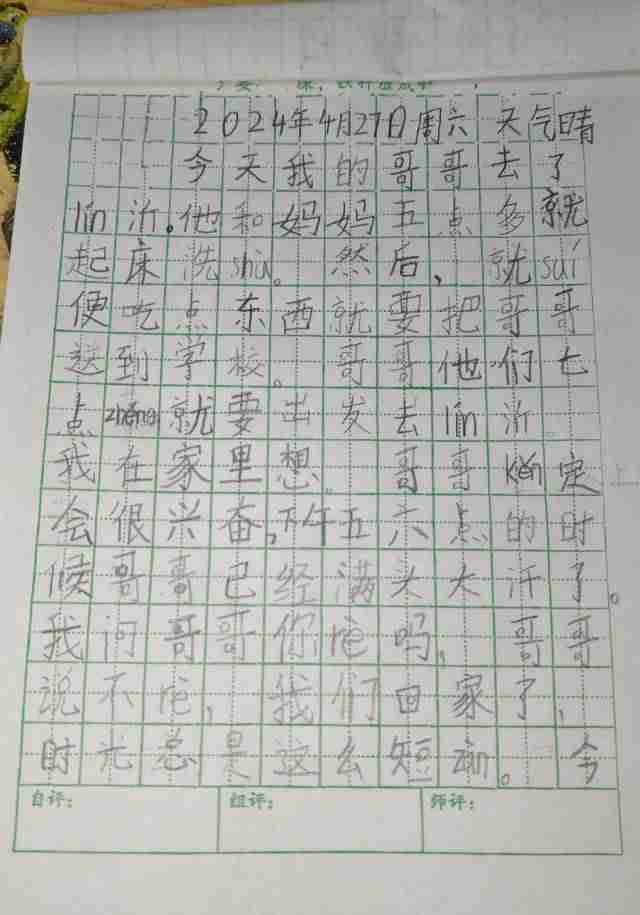 2024年4月27日周六 天气晴
今天我的哥哥去了
lín沂。他和妈妈五点多就
起床洗shù。然后，就suí
便吃点东西就要把哥哥
送到学校。哥哥他们七
点zhěng就要出发去lín沂。
我在家里想。哥哥kěn定
会很兴奋，下午五六点的时
候哥哥已经满头大汗了。
我问哥哥你吗，哥哥
说不，我们回家了，
时光总是这么短zàn。今
自评：
组评：
师评：